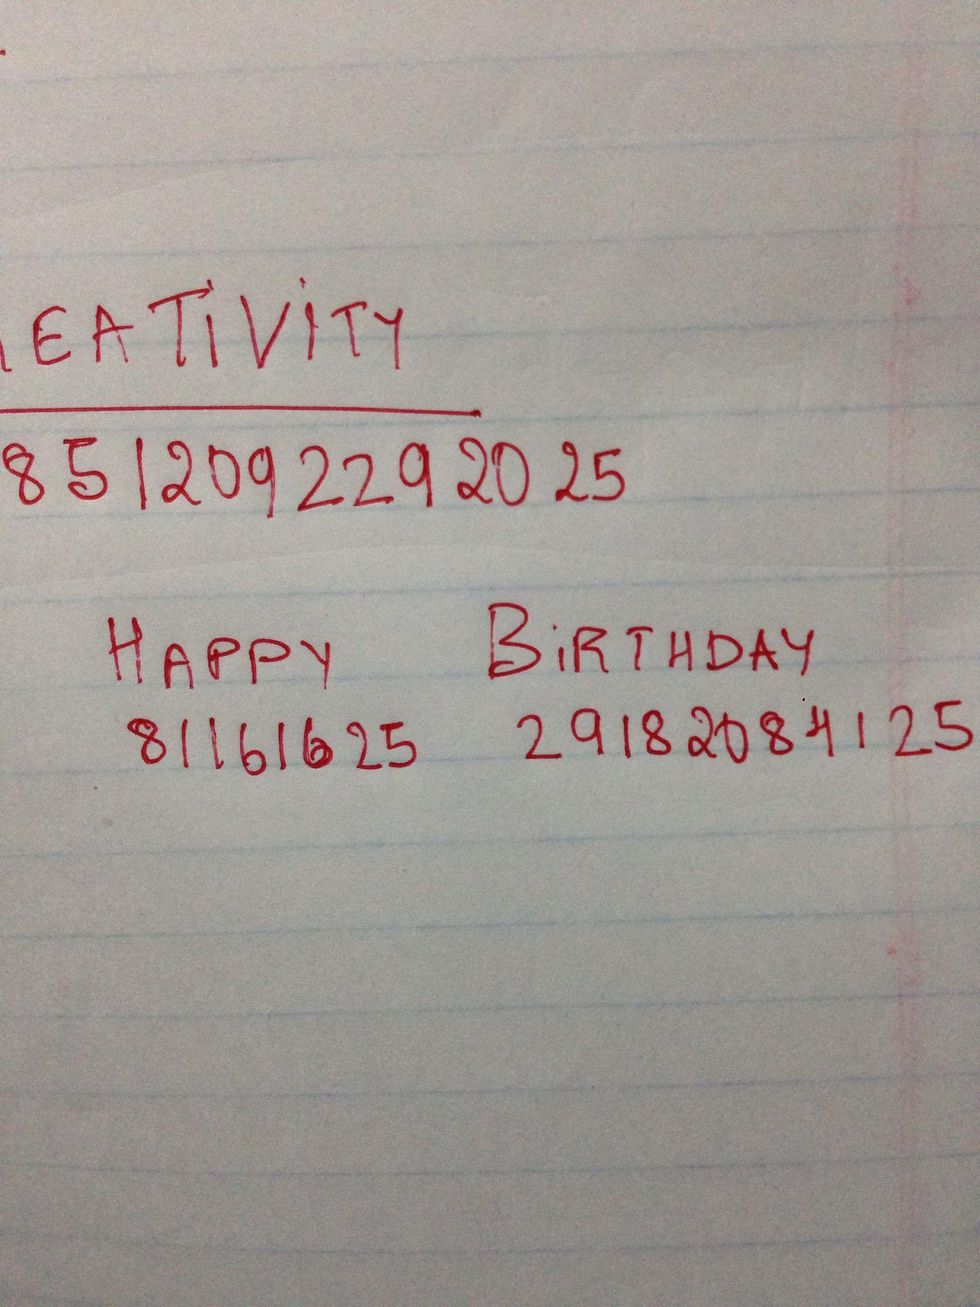 EATiViTY
8 5 1 20 9 22 9 20 25
HAPPY BiRTHDAY
81161625 29182084125